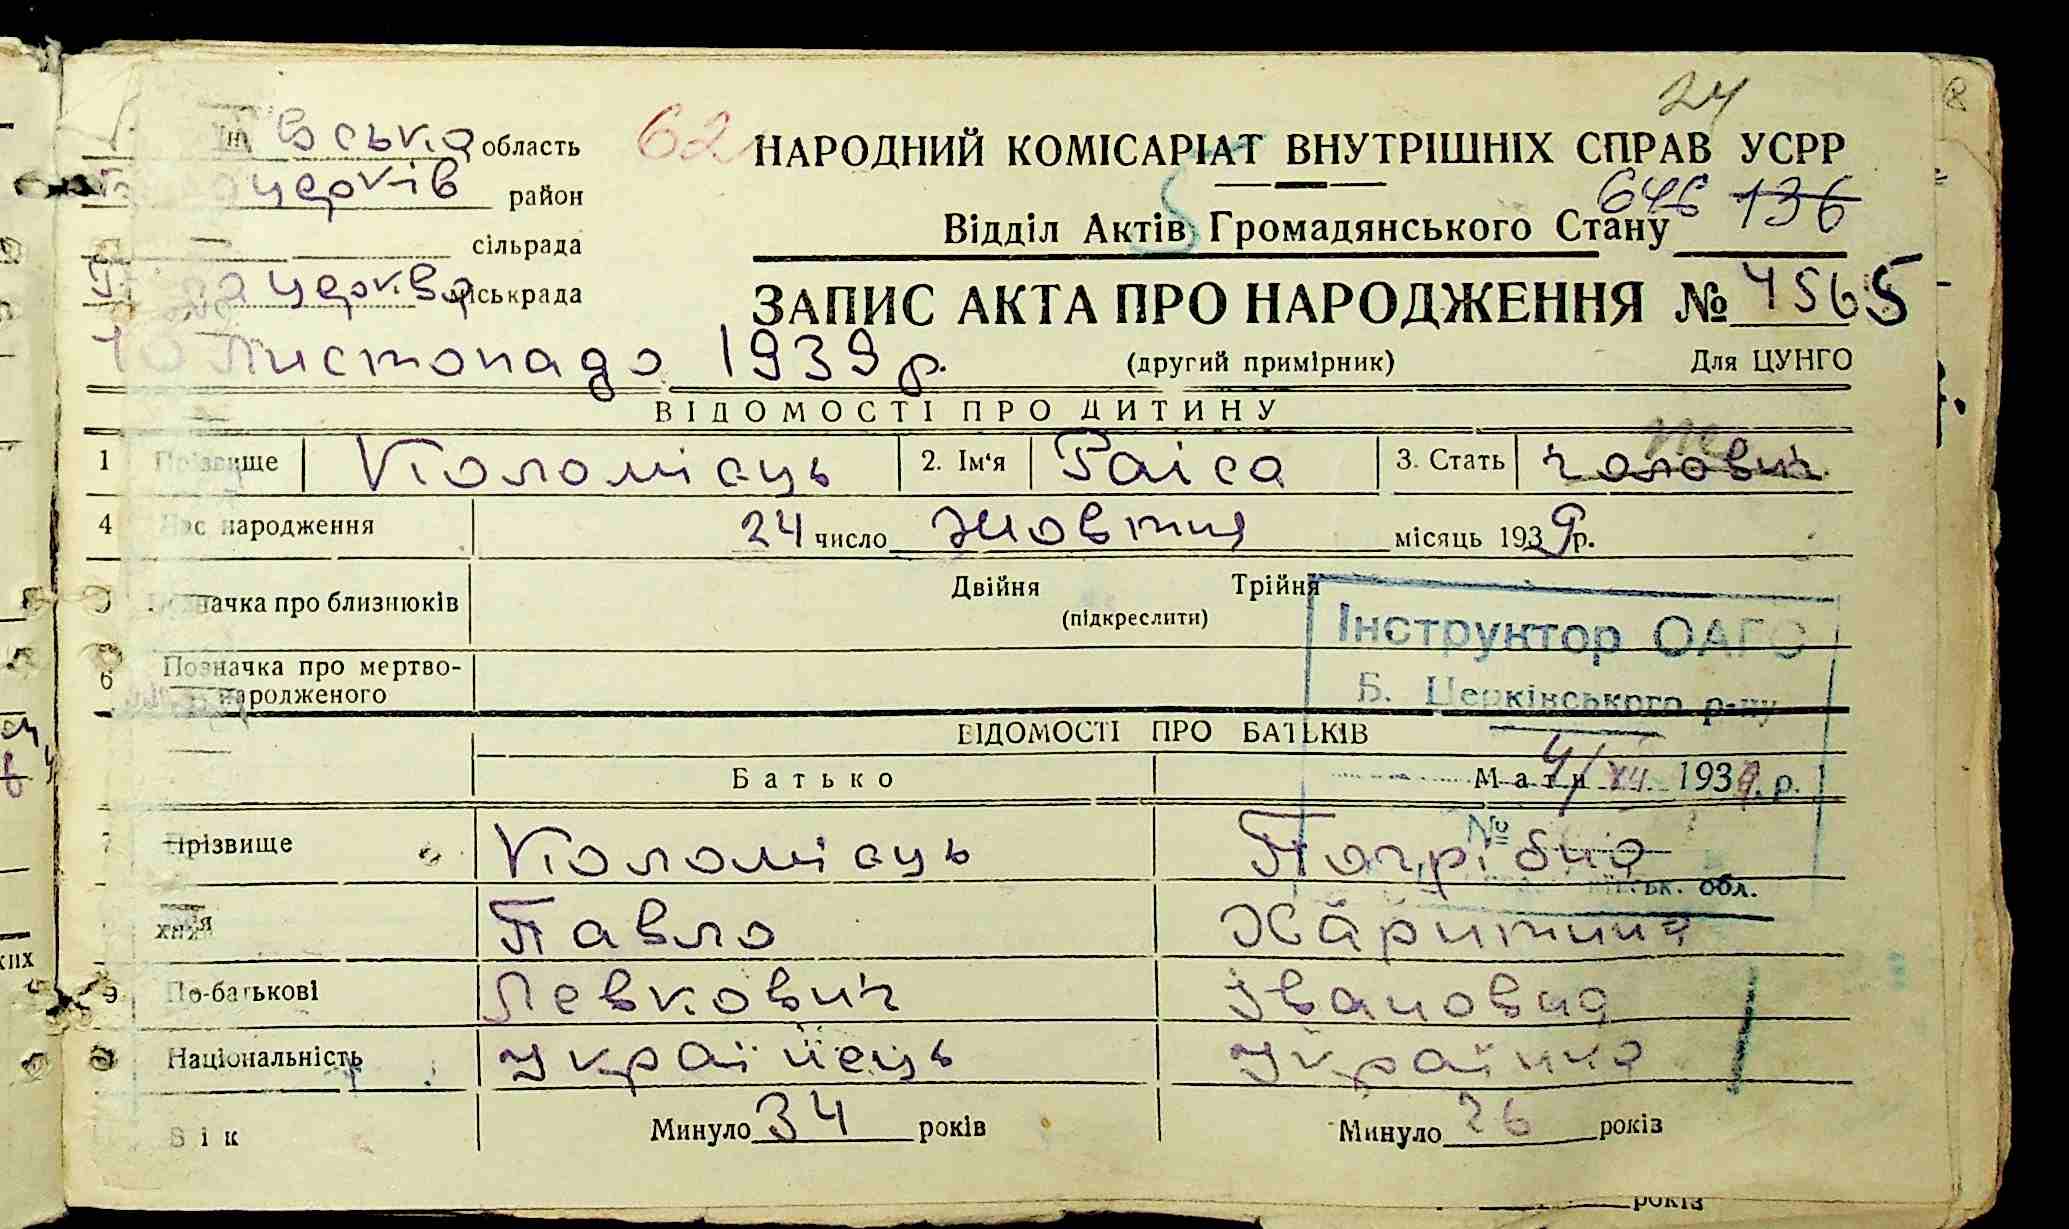 24
8
вська область
62 НАРОДНИЙ КОМІСАРІАТ ВНУТРІШНІХ СПРАВ УСРР
церків район
646 136
Відділ Актів Громадянського Стану
сільрада
Біла церква міськрада
ЗАПИС АКТА ПРО НАРОДЖЕННЯ № 4565
10 Листопада 1939 р.
(другий примірник) Для ЦУНГО
ВІДОМОСТІ ПРО ДИТИНУ
1 Прізвище Коломієць 2. Ім'я Раіса 3. Стать чоловіч.
4 Час народження 24 число жовтня місяць 1939 р.
Двійня Трійня
Позначка про близнюків (підкреслити)
Інструктор ОАГС
6 Позначка про мертво-
народженого
Б. Церківського р-ну
ВІДОМОСТІ ПРО БАТЬКІВ
Батько Мати
4/XII 1939. р.
№
7 Прізвище Коломієць Погрібна
обл.
Павло Харитина
9 По-батькові Левкович Івановна
Національність Українець Українка
Вік Минуло 34 років Минуло 26 років
років